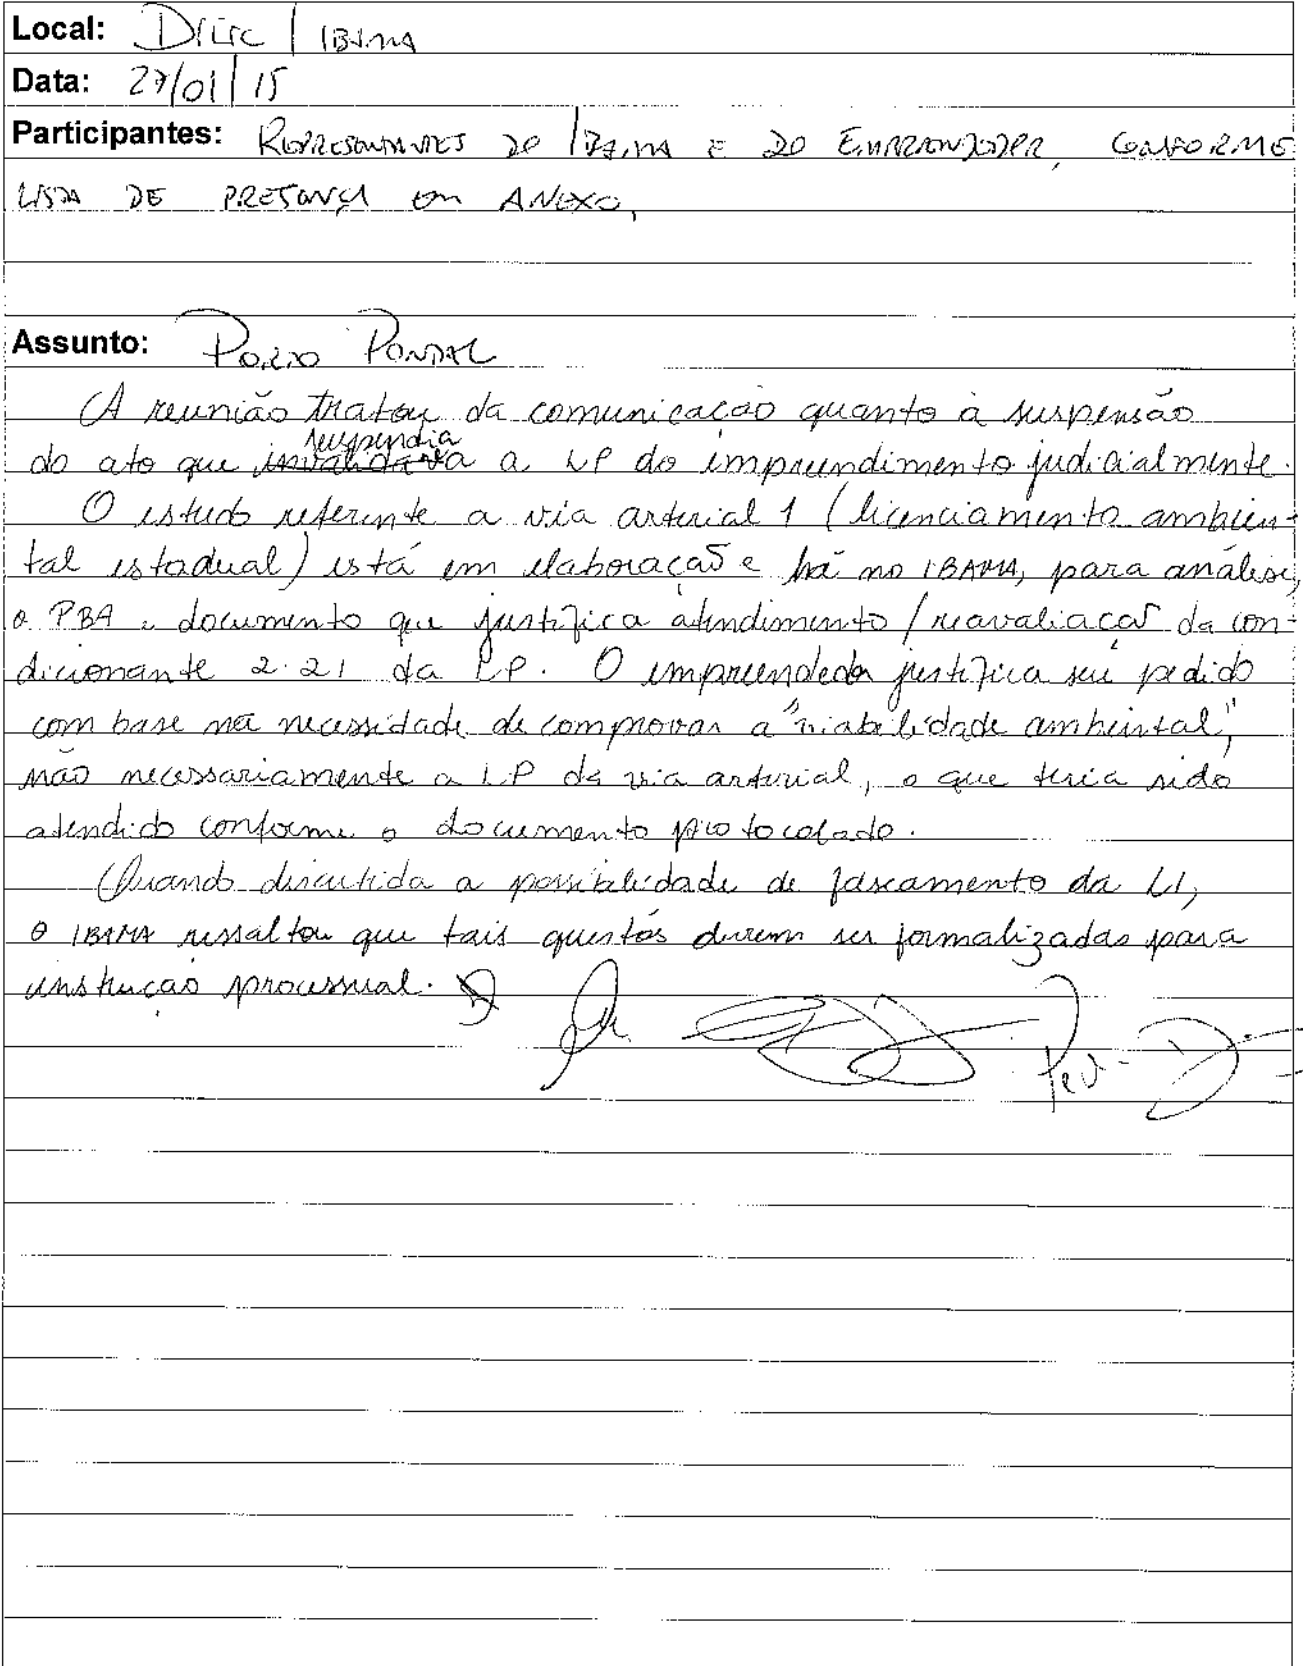 Local: DILIC / IBAMA
Data: 27/01/15
Participantes: REPRESENTANTES DO IBAMA E DO EMPREENDEDOR, CONFORME
LISTA DE PRESENÇA EM ANEXO.
Assunto: PORTO PONTAL
A reunião tratou da comunicação quanto à suspensão
suspendia
do ato que invalidava a LP do empreendimento judicialmente.
O estudo referente a via arterial 1 (licenciamento ambien-
tal estadual) está em elaboração e há no IBAMA, para análise,
o PBA e documento que justifica atendimento/reavaliação da con-
dicionante 2.21 da LP. O empreendedor justifica seu pedido
com base na necessidade de comprovar a "viabilidade ambiental",
não necessariamente a LP da via arterial, o que teria sido
atendido conforme o documento protocolado.
Quando discutida a possibilidade de faseamento da LI,
o IBAMA ressaltou que tais questões devem ser formalizadas para
instrução processual.